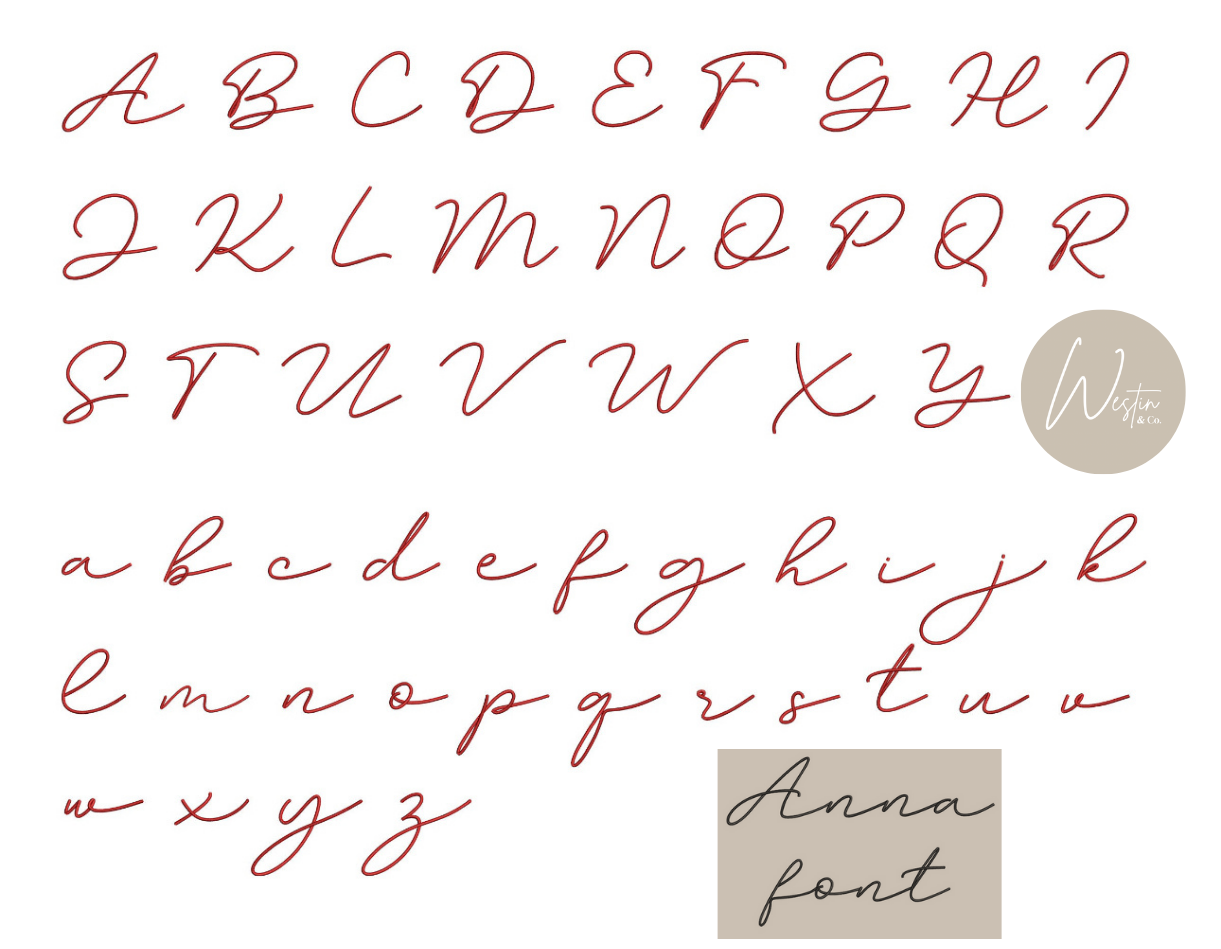 A B C D E F G H I
J K L M N O P Q R
S T U V W X Y
Westin
& Co.
a b c d e f g h i j k
l m n o p q r s t u v
w x y z
Anna
font